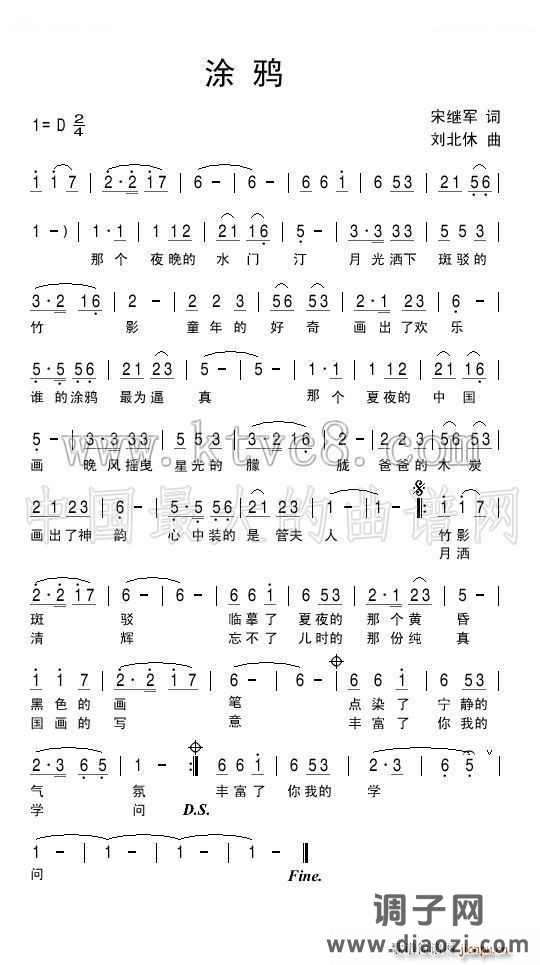 涂鸦
1= D 2/4
宋继军 词
刘北休 曲
i i 7 | 2·2 i 7 | 6 - | 6 - | 6 6 i | 6 53 | 21 56 |
1 -) | 1·1 | 1 12 | 21 16 | 5 - | 3·3 33 | 5 53 |
那个 夜晚的 水门 汀 月光洒下 斑驳的
3·2 16 | 2 - | 2 2 3 | 56 53 | 2·1 23 | 6 - |
竹 影 童年的 好奇 画出了欢 乐
5·5 56 | 21 23 | 5 - | 5 - | 1·1 | 1 12 | 21 16 |
谁的涂鸦 最为逼 真 那个 夏夜的 中国
5 - | 3·3 33 | 5 53 | 3·2 16 | 2 - | 2 23 | 56 53 |
画 晚风摇曳 星光的 朦 胧 爸爸的 木炭
2·1 23 | 6 - | 5·5 56 | 21 23 | 1 - | 1 - |: i i 7 |
画出了神 韵 心中装的 是管夫 人 竹影
月洒
2·2 i 7 | 6 - | 6 - | 6 6 i | 6 53 | 2·1 23 | 5 - |
斑 驳 临摹了 夏夜的 那个黄 昏
清 辉 忘不了 儿时的 那份纯 真
i i 7 | 2·2 | 2 i 7 | 6 - | 6 - | 6 6 i | 6 53 |
黑色的 画 笔 点染了 宁静的
国画的 写 意 丰富了 你我的
2·3 65 | 1 - | 1 - :| 6 6 i | 6 53 | 2·3 | 6 5 |
气 氛 丰富了 你我的 学
学 问 D.S.
1 - | 1 - | 1 - | 1 - ‖
问 Fine.
www.ktvc8.com
中国最大的曲谱网
调子网
www.diaozi.com